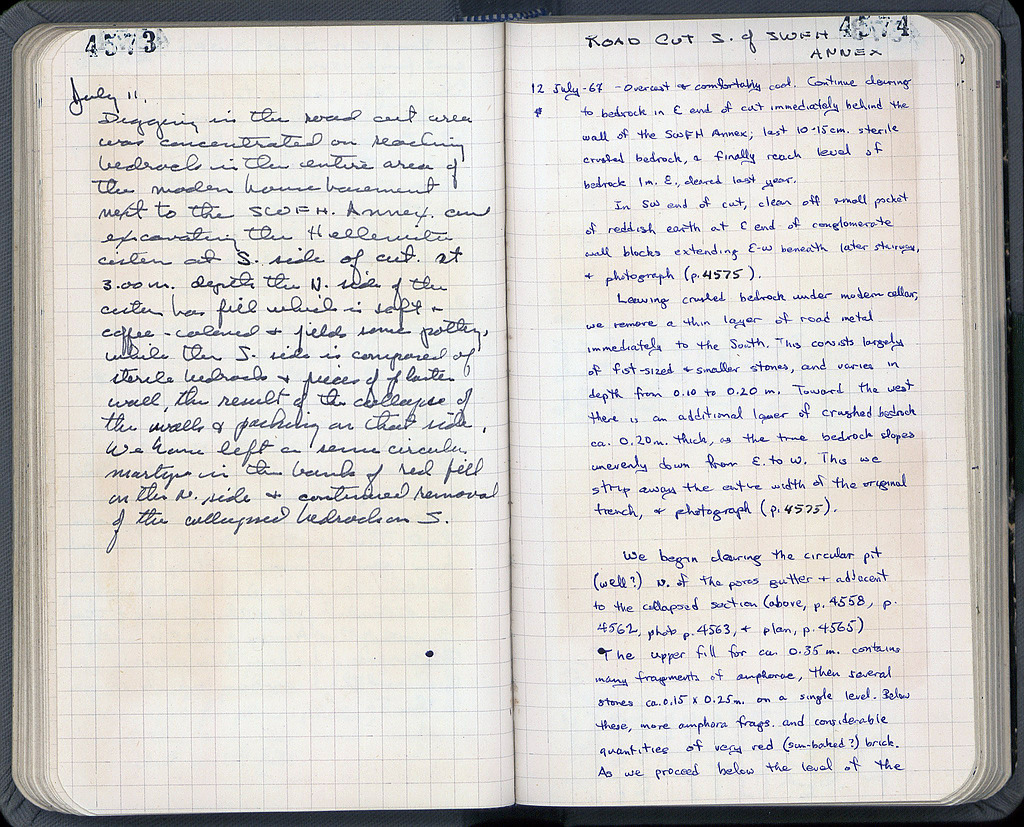 4573
July 11.
Digging in the road cut area
was concentrated on reaching
bedrock in the entire area of
the modern house basement
next to the SWFH. Annex. and
excavating the Hellenistic
cistern at S. side of cut. At
3.00 m. depth the N. side of the
cistern has fill which is soft +
coffee-colored + yields some pottery,
while the S. side is composed of
sterile bedrock + pieces of plaster
wall, the result of the collapse of
the walls & packing on that side.
We have left a semi circular
martyr in the bank of red fill
on the N. side + continued removal
of the collapsed bedrock on S.
4574
ROAD CUT S. of SWFH
ANNEX
12 July-67 - Overcast & comfortably cool. Continue clearing
to bedrock in E end of cut immediately behind the
wall of the SWFH Annex; last 10-15cm. sterile
crushed bedrock, & finally reach level of
bedrock 1m. E., cleared last year.
In SW end of cut, clean off small pocket
of reddish earth at E end of conglomerate
wall blocks extending E-W beneath later stairway,
+ photograph (p. 4575).
Leaving crushed bedrock under modern cellar,
we remove a thin layer of road metal
immediately to the South. This consists largely
of fist-sized & smaller stones, and varies in
depth from 0.10 to 0.20 m. Toward the west
there is an additional layer of crushed bedrock
ca. 0.20m. thick, as the true bedrock slopes
unevenly down from E. to W. This we
strip away the entire width of the original
trench, & photograph (p. 4575).
We begin clearing the circular pit
(well?) N. of the poros gutter + adjacent
to the collapsed section (above, p. 4558, p.
4562, photo p. 4563, + plan, p. 4565)
The upper fill for ca. 0.35 m. contains
many fragments of amphorae, then several
stones ca. 0.15 x 0.25m. on a single level. Below
these, more amphora frags. and considerable
quantities of very red (sun-baked?) brick.
As we proceed below the level of the